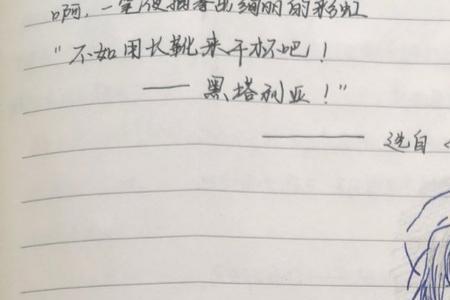 啊，一笔便描着出绚丽的彩虹
"不如用长靴来干杯吧！
—— 黑塔利亚！"
—— 选自